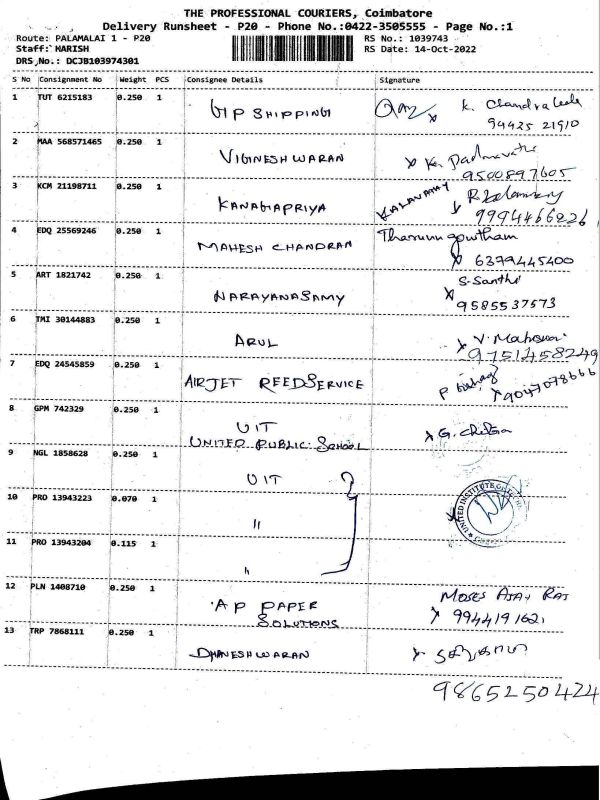 THE PROFESSIONAL COURIERS, Coimbatore
Delivery Runsheet - P20 - Phone No.:0422-3505555 - Page No.:1
Route: PALAMALAI 1 - P20 RS No.: 1039743
Staff: HARISH RS Date: 14-Oct-2022
DRS No.: DCJB103974301
S No Consignment No Weight PCS Consignee Details Signature
1 TUT 6215183 0.250 1 GIP SHIPPING K. Chandraleela
94425 21910
2 MAA 568571465 0.250 1 VIGINESHWARAN K. Padmavathi
9500897605
3 KCM 21198711 0.250 1 KANAGAPRIYA KALAVAMY
9994466226
4 EDQ 25569246 0.250 1 MAHESH CHANDRAN Tharun gowtham
6379445400
5 ART 1821742 0.250 1 NARAYANASAMY S.Santhi
9585537573
6 TMI 30144883 0.250 1 ARUL V. Maheswari
9751458249
7 EDQ 24545859 0.250 1 AIRJET REEDSERVICE P
9047078666
8 GPM 742329 0.250 1 UIT G. Chitra
UNITED PUBLIC SCHOOL
9 NGL 1858628 0.250 1 UIT
10 PRO 13943223 0.070 1 "
UNITED INSTITUTE OF
11 PRO 13943204 0.115 1 "
12 PLN 1408710 0.250 1 AP PAPER MOSES AJAY RAJ
SOLUTIONS 9944191621
13 TRP 7868111 0.250 1 DHANESHWARAN
9865250424